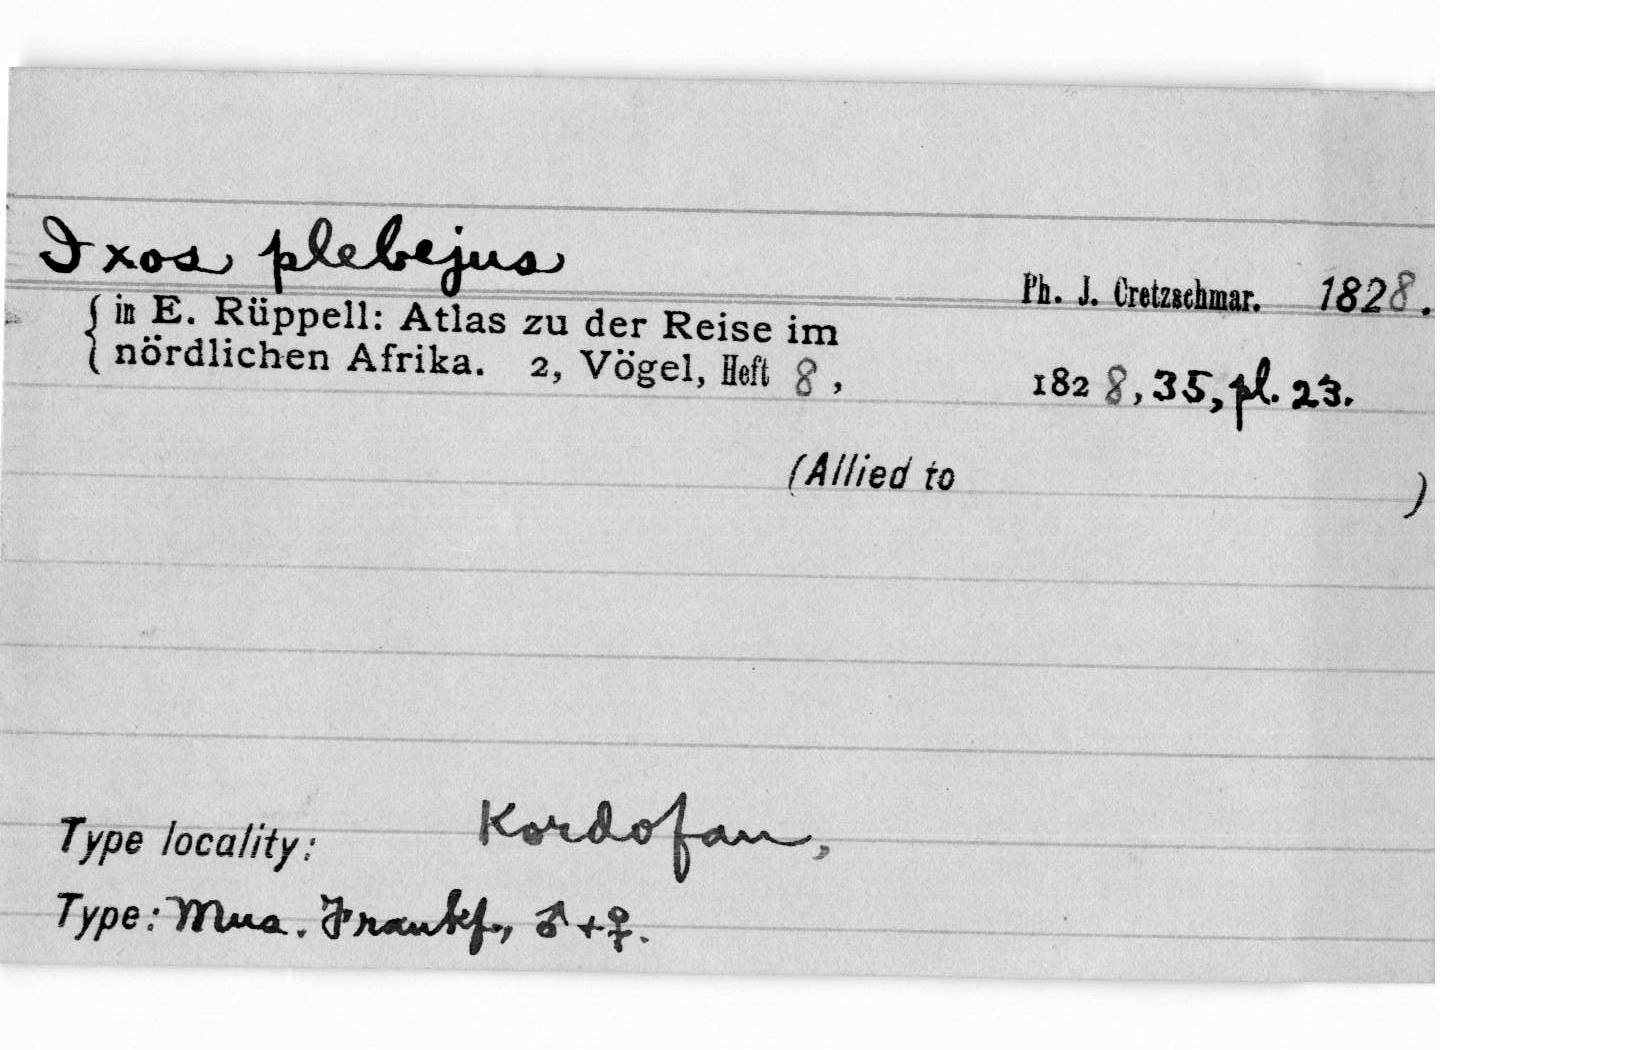 Ixos plebejus
Ph. J. Cretzschmar. 1828.
{ in E. Rüppell: Atlas zu der Reise im
nördlichen Afrika. 2, Vögel, Heft 8, 1828, 35, pl. 23.
(Allied to )
Type locality: Kordofan,
Type: Mus. Frankf., ♂ + ♀.